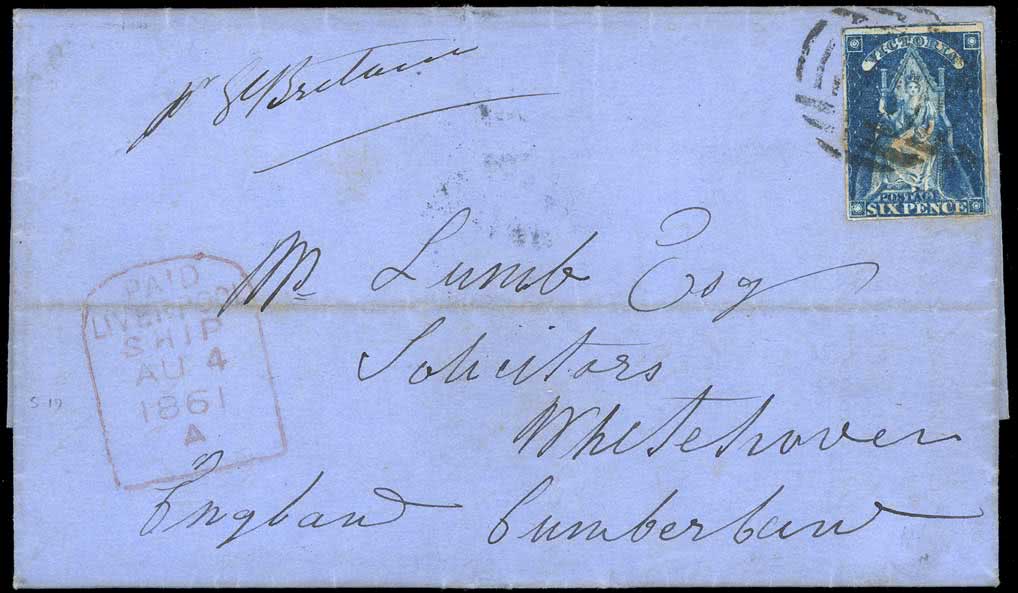 pr Gt Britain
VICTORIA
POSTAGE
SIX PENCE
Lumb Esq
Solicitors
Whitehaven
England Cumberland
PAID
LIVERPOOL
SHIP
AU 4
1861
A
S 19